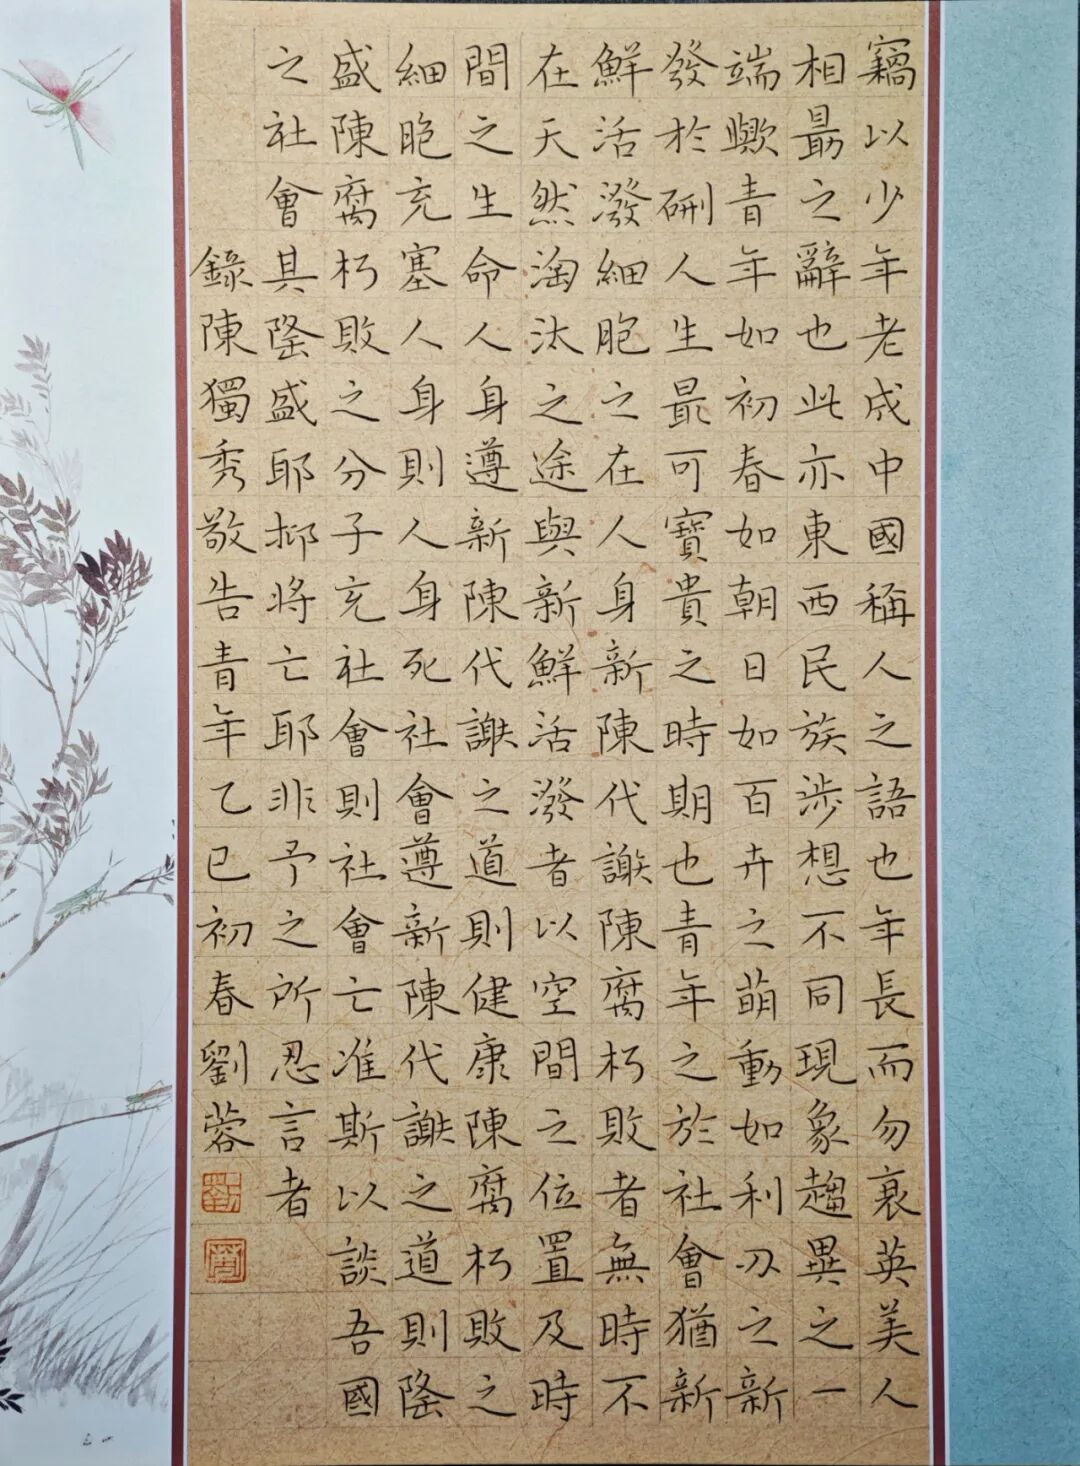 竊以少年老成中國稱人之語也年長而勿衰英美人
相勗之辭也此亦東西民族涉想不同現象趨異之一
端歟青年如初春如朝日如百卉之萌動如利刃之新
發於硎人生最可寶貴之時期也青年之於社會猶新
鮮活潑細胞之在人身新陳代謝陳腐朽敗者無時不
在天然淘汰之途與新鮮活潑者以空間之位置及時
間之生命人身遵新陳代謝之道則健康陳腐朽敗之
細胞充塞人身則人身死社會遵新陳代謝之道則隆
盛陳腐朽敗之分子充社會則社會亡准斯以談吾國
之社會其隆盛耶抑將亡耶非予之所忍言者
錄陳獨秀敬告青年乙巳初春劉蓉
劉